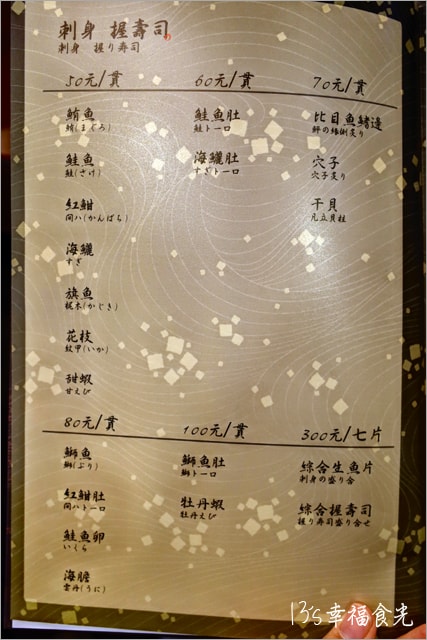 刺身 握壽司
刺身 握り寿司
50元/貫
鮪魚
鮪(まぐろ)
鮭魚
鮭(さけ)
紅魽
間ハ(かんぱち)
海鱺
すぎ
旗魚
梶木(かじき)
花枝
紋甲(いか)
甜蝦
甘えび
60元/貫
鮭魚肚
鮭トーロ
海鱺肚
すぎトーロ
70元/貫
比目魚鰭邊
鮃の縁側炙り
穴子
穴子炙り
干貝
凡立貝柱
80元/貫
鰤魚
鰤(ぶり)
紅魽肚
間ハトーロ
鮭魚卵
いくら
海膽
雲丹(うに)
100元/貫
鰤魚肚
鰤トーロ
牡丹蝦
牡丹えび
300元/七片
綜合生魚片
刺身の盛り合
綜合握壽司
握り寿司盛り合せ
13's幸福食光